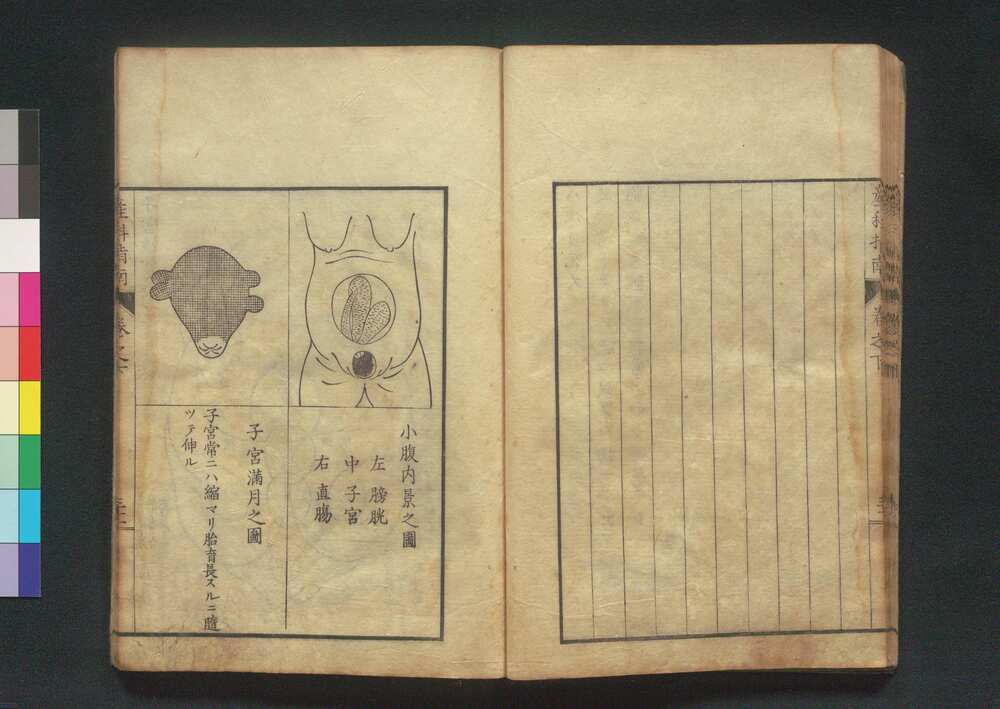 産科指南 卷之下
小腹内景之圖
左 膀胱
中 子宮
右 直腸
子宮滿月之圖
子宮常ニハ縮マリ胎育長スルニ隨
ツテ伸ル
産科指南